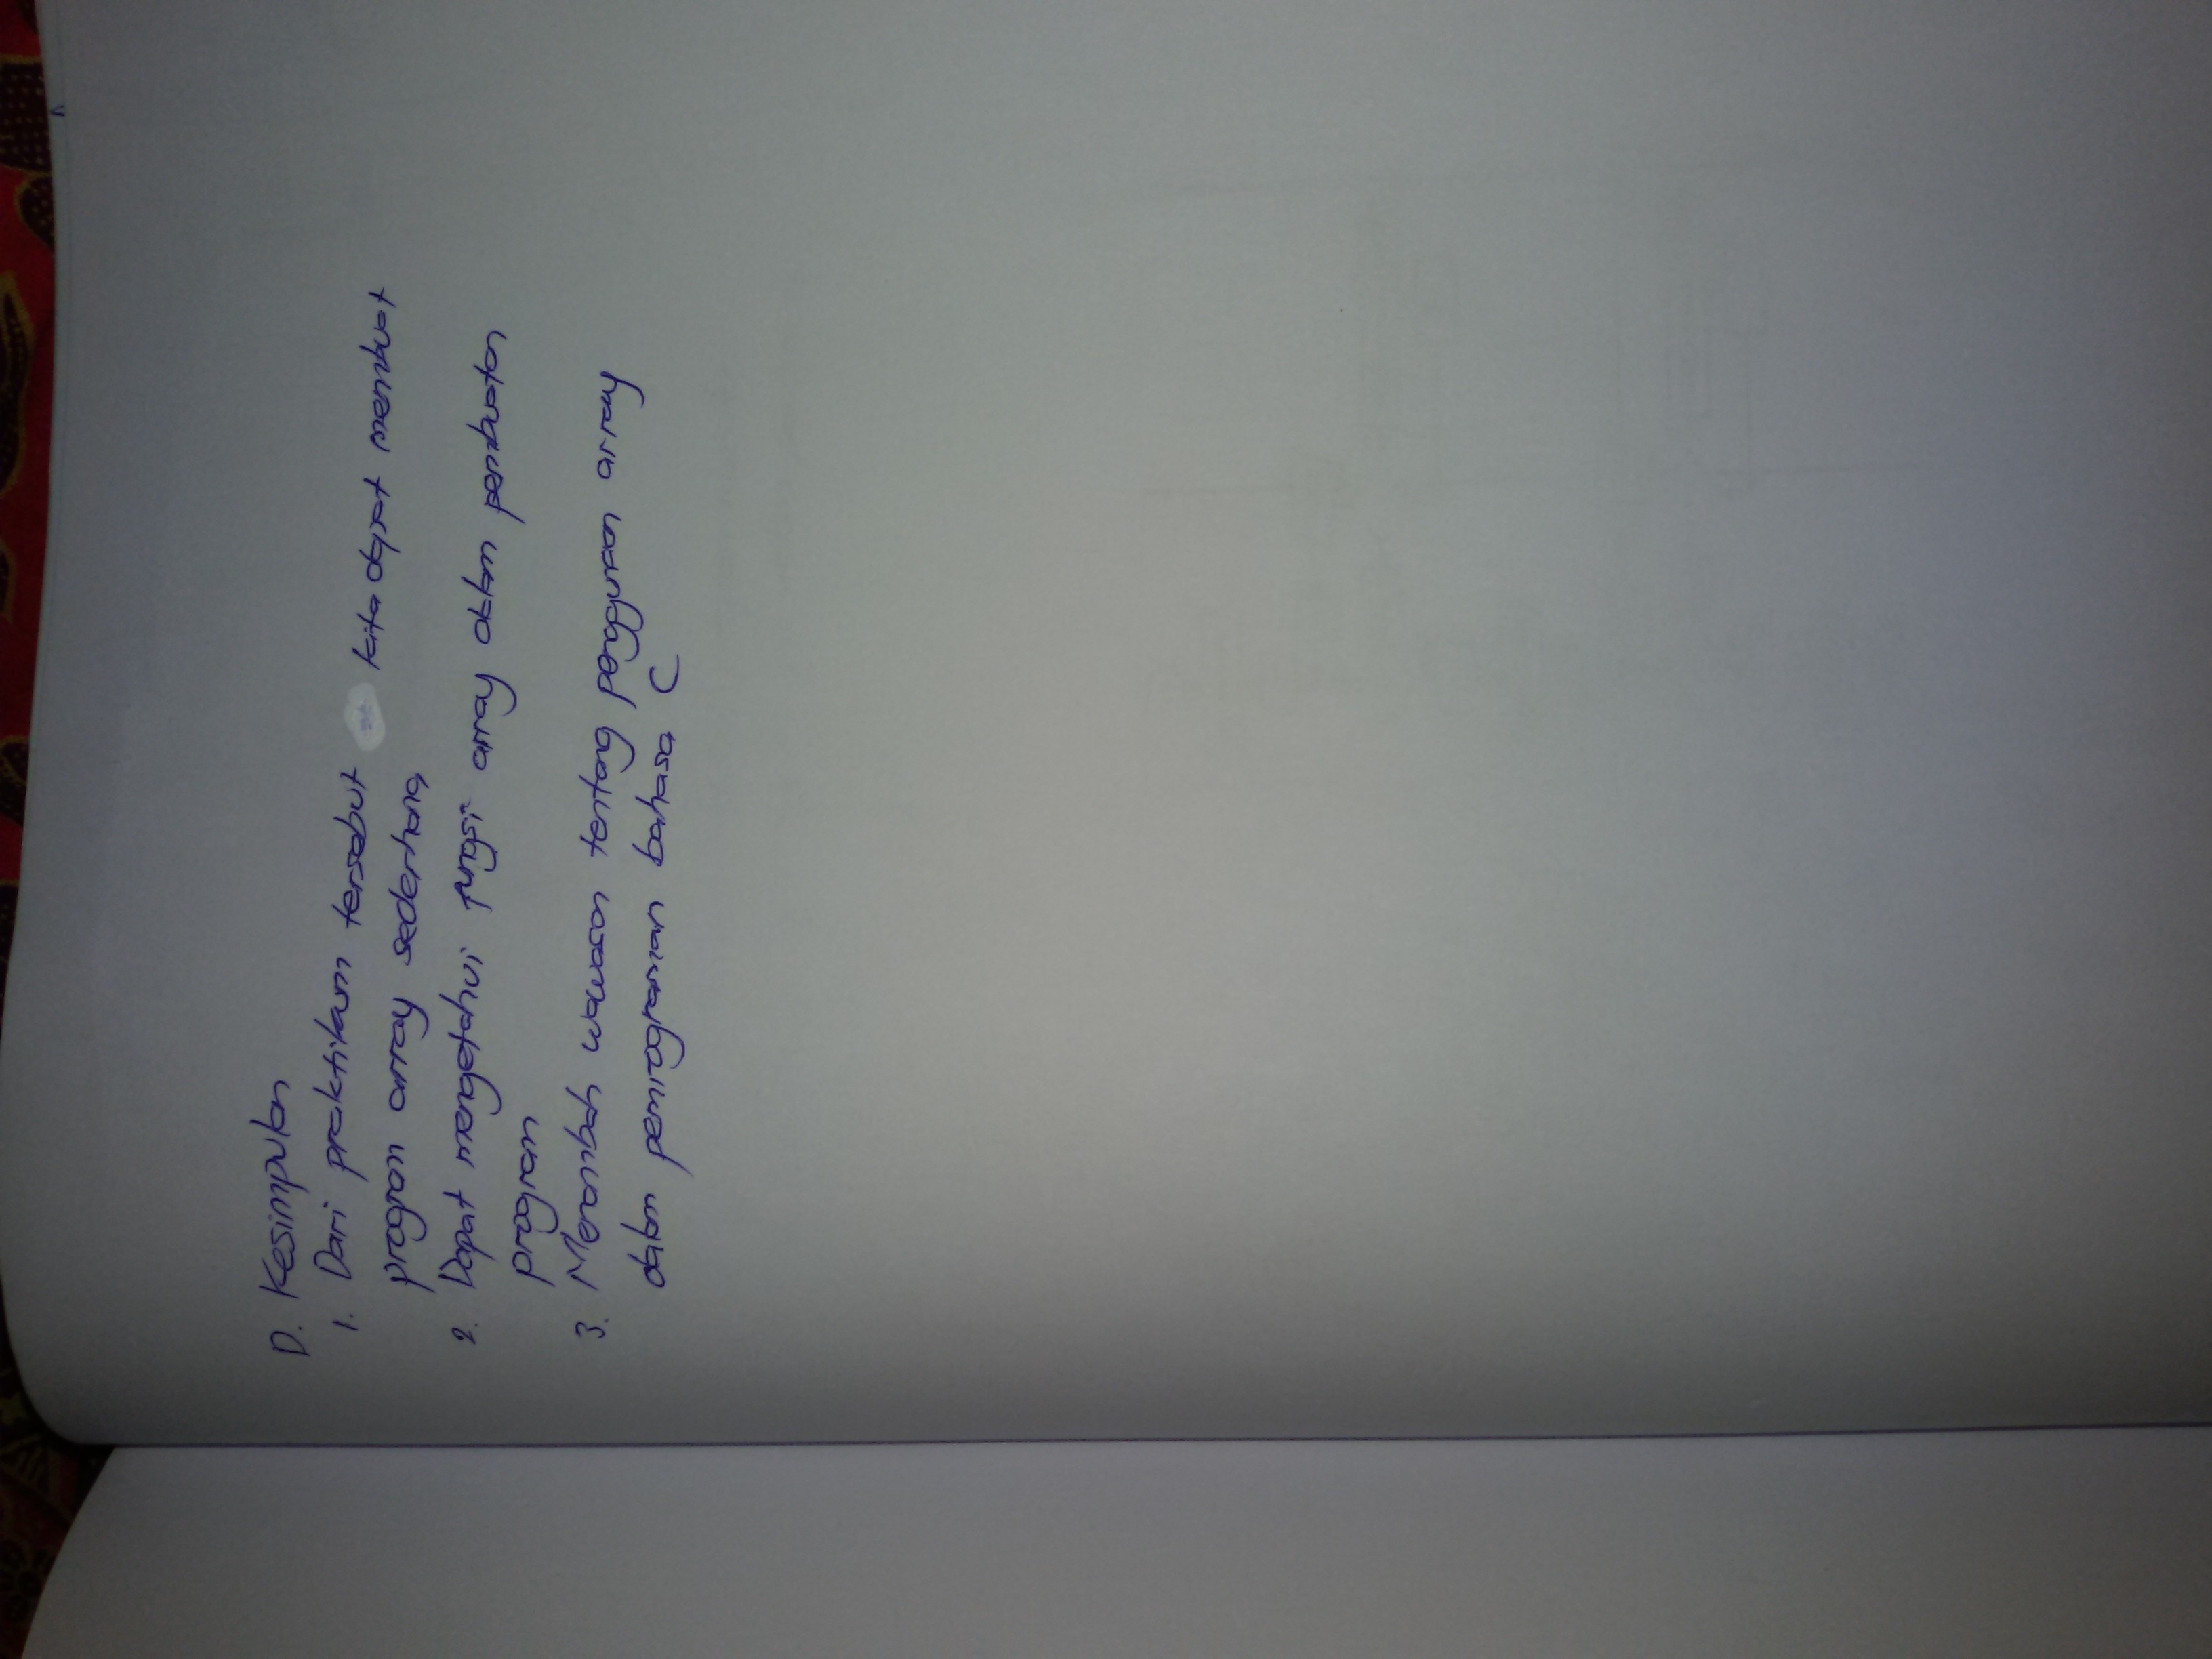 D. Kesimpulan
1. Dari praktikum tersebut kita dapat membuat
program array sederhana
2. Dapat mengetahui fungsi array dalam pembuatan
program
3. Menambah wawasan tentang penggunaan array
dalam pemrograman bahasa C